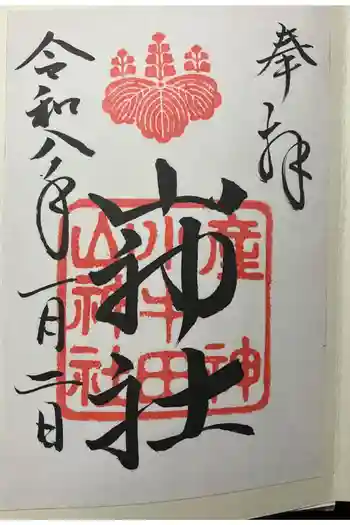 奉拝
山神社
産神
小牛田
山神社
令和八年一月二日